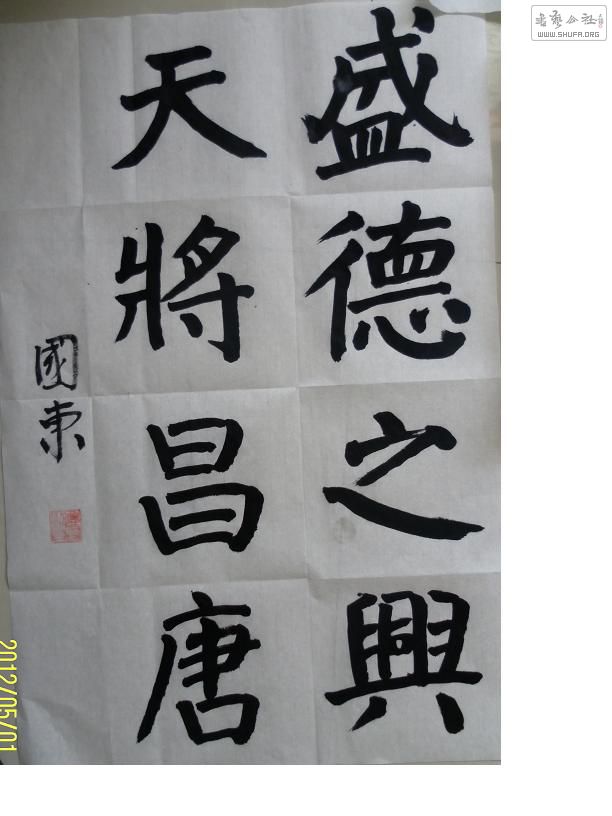 盛德之興
天將昌唐
國東
書藝公社
WWW.SHUFA.ORG
2012/05/01